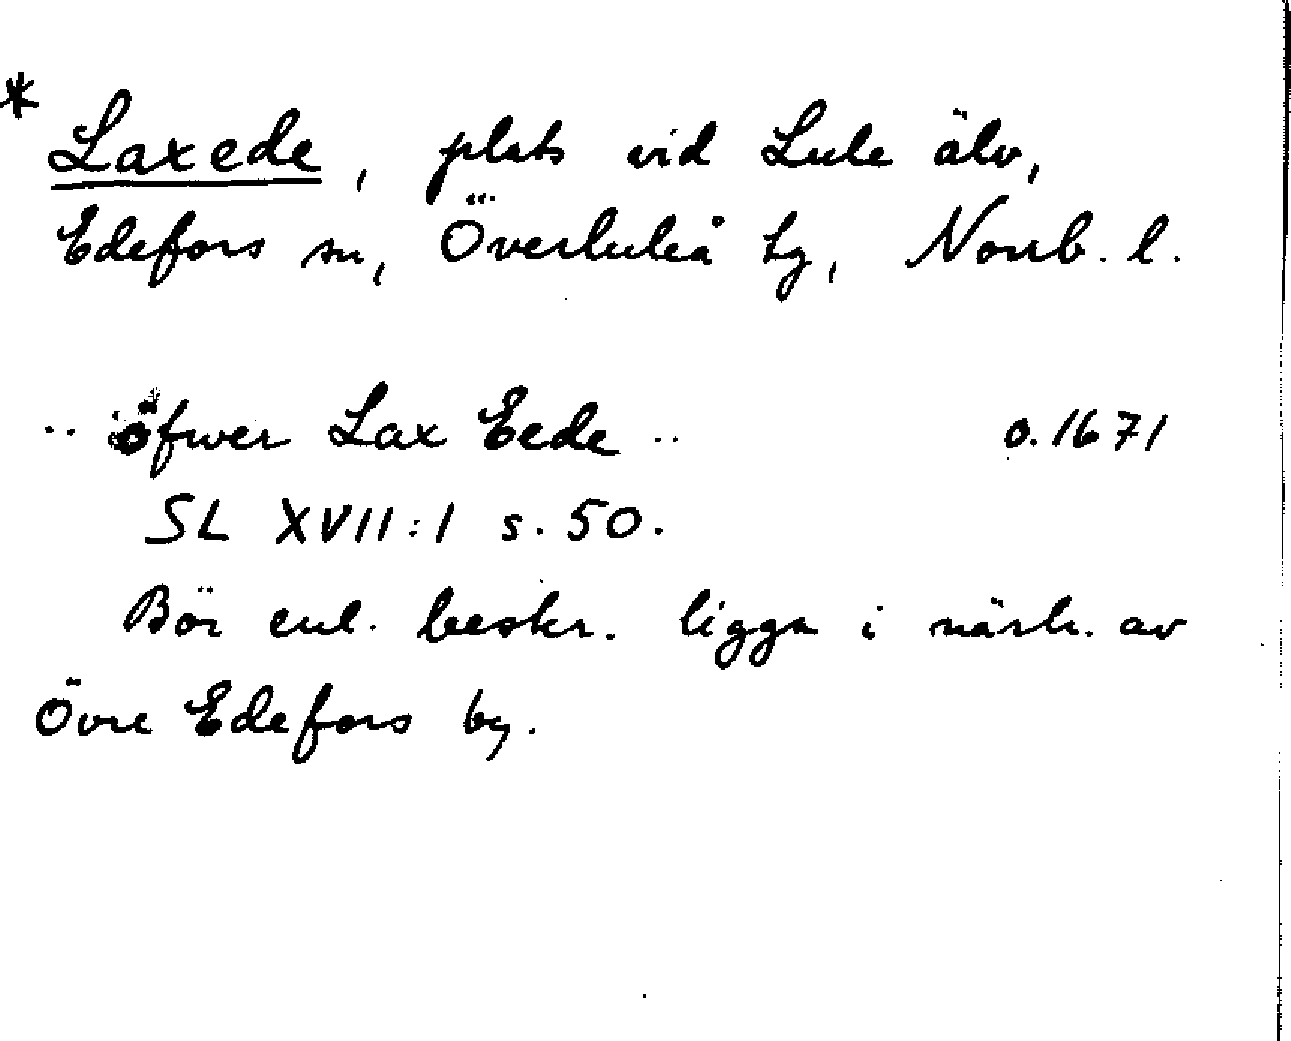 * Laxede, plats vid Lule älv,
Edefors sn, Överluleå tg, Norrb. l.
.. öfwer Lax Eede .. o. 1671
SL XVII:1 s. 50.
Bör enl. beskr. ligga i närh. av
Övre Edefors by.